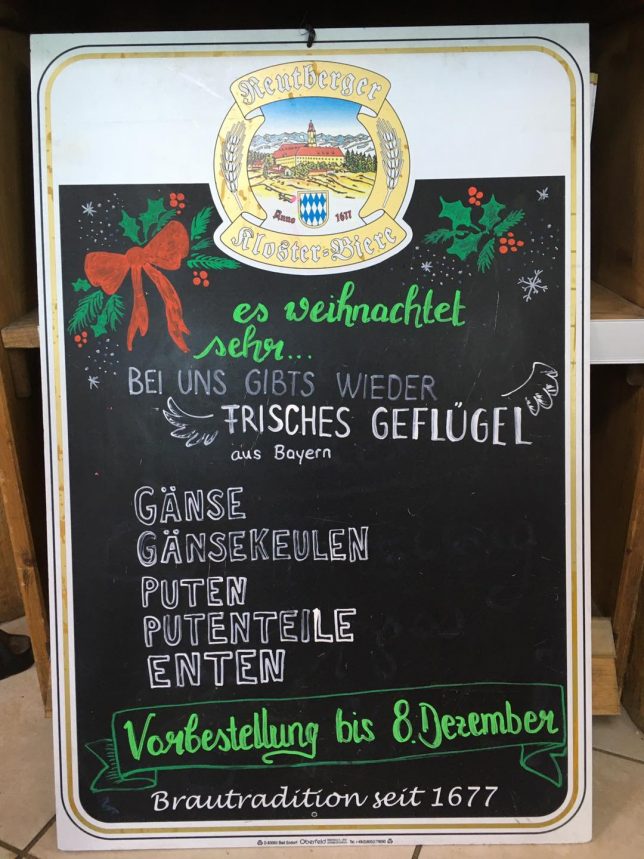 Reutberger
Anno 1677
Kloster-Biere
es weihnachtet
sehr...
BEI UNS GIBTS WIEDER
FRISCHES GEFLÜGEL
aus Bayern
GÄNSE
GÄNSEKEULEN
PUTEN
PUTENTEILE
ENTEN
Vorbestellung bis 8. Dezember
Brautradition seit 1677
Oberfeld